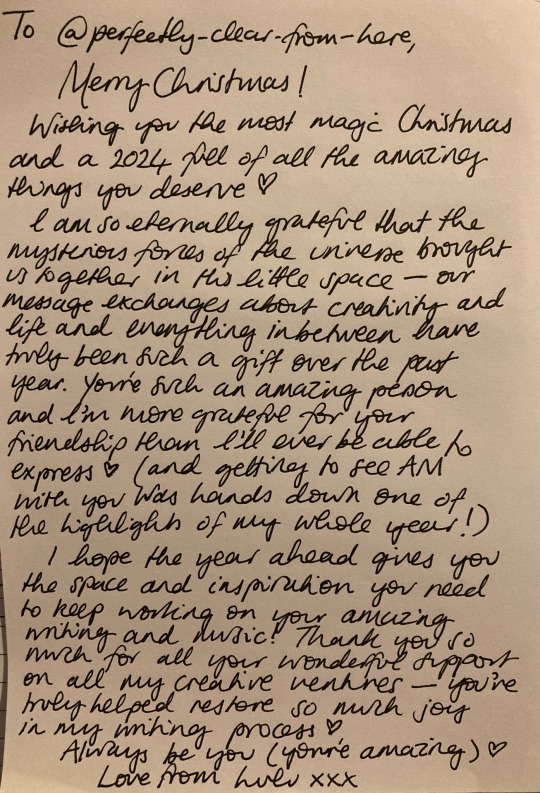 To @perfectly-clear-from-here,
Merry Christmas!
Wishing you the most magic Christmas
and a 2024 full of all the amazing
things you deserve ♡
I am so eternally grateful that the
mysterious forces of the universe brought
us together in this little space – our
message exchanges about creativity and
life and everything inbetween have
truly been such a gift over the past
year. You're such an amazing person
and I'm more grateful for your
friendship than I'll ever be able to
express ♡ (and getting to see AM
with you was hands down one of
the highlights of my whole year!)
I hope the year ahead gives you
the space and inspiration you need
to keep working on your amazing
writing and music! Thank you so
much for all your wonderful support
on all my creative ventures – you've
truly helped restore so much joy
in my writing process ♡
Always be you (you're amazing) ♡
Love from xxx